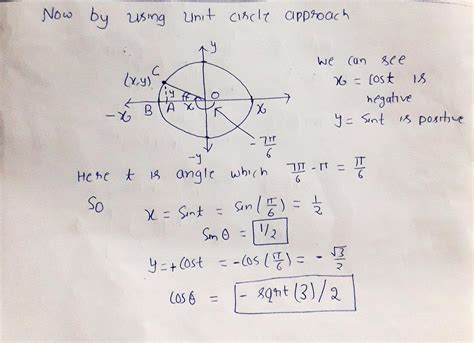 Now by using unit circle approach
y
C
(x,y)
we can see
x = cost is
negative
y = sint is positive
y
t
x
O
-x
B
A
x
-7π/6
-y
Here t is angle which 7π/6 - π = π/6
So
x = sint = sin(π/6) = 1/2
Sinθ = 1/2
y = +cost = -cos(π/6) = -√3/2
cosθ = - sqrt(3)/2